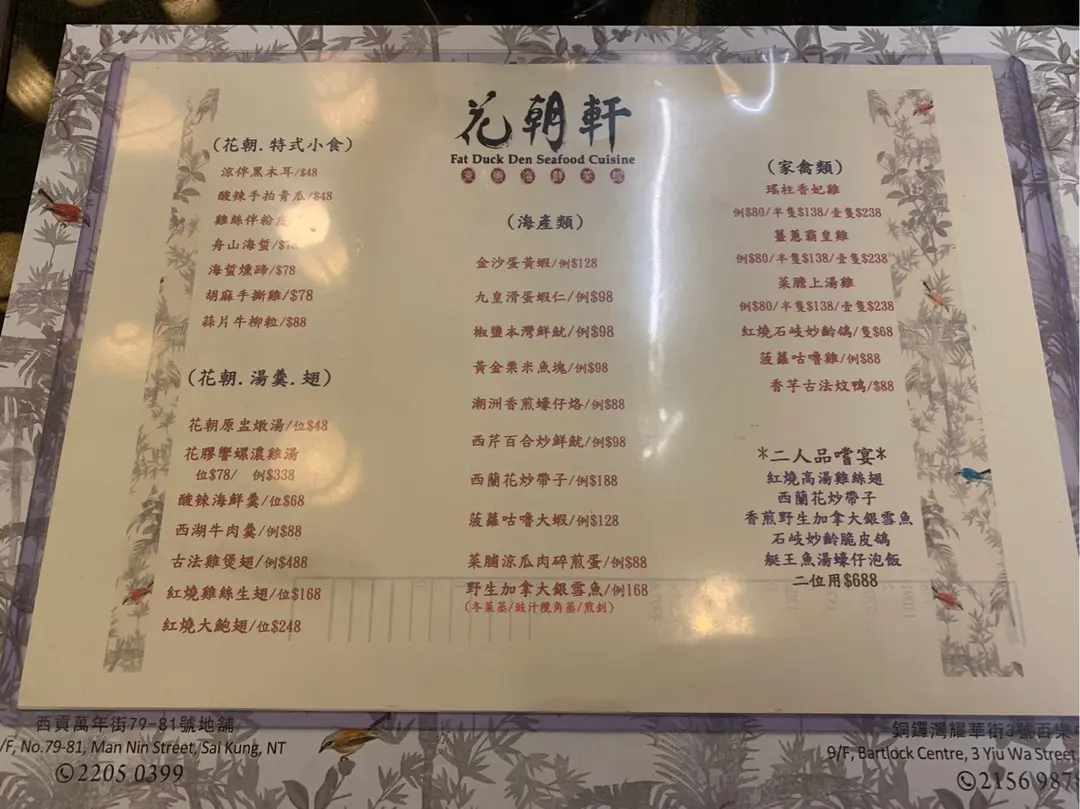 花朝軒
Fat Duck Den Seafood Cuisine
(花朝.特式小食)
涼伴黑木耳/$48
酸辣手拍青瓜/$48
雞絲伴粉皮
舟山海蜇/$78
海蜇燻蹄/$78
胡麻手撕雞/$78
蒜片牛柳粒/$88
(花朝.湯羹.翅)
花朝原盅燉湯/位$48
花膠響螺濃雞湯
位$78/ 例$338
酸辣海鮮羹/位$68
西湖牛肉羹/例$88
古法雞煲翅/例$488
紅燒雞絲生翅/位$168
紅燒大鮑翅/位$248
(海產類)
金沙蛋黃蝦/例$128
九皇滑蛋蝦仁/例$98
椒鹽本灣鮮魷/例$98
黃金粟米魚塊/例$98
潮洲香煎蠔仔烙/例$88
西芹百合炒鮮魷/例$98
西蘭花炒帶子/例$188
菠蘿咕嚕大蝦/例$128
菜脯涼瓜肉碎煎蛋/例$88
野生加拿大銀雪魚/例168
(冬菜蒸/豉汁欖角蒸/煎封)
(家禽類)
瑤柱香妃雞
例$80/半隻$138/壹隻$238
薑蔥霸皇雞
例$80/半隻$138/壹隻$238
菜膽上湯雞
例$80/半隻$138/壹隻$238
紅燒石岐妙齡鴿/隻$68
菠蘿咕嚕雞/例$88
香芋古法炆鴨/$88
*二人品嚐宴*
紅燒高湯雞絲翅
西蘭花炒帶子
香煎野生加拿大銀雪魚
石岐妙齡脆皮鴿
艇王魚湯蠔仔泡飯
二位用$688
西貢萬年街79-81號地舖
/F, No.79-81, Man Nin Street, Sai Kung, NT
2205 0399
銅鑼灣耀華街3號百樂
9/F, Bartlock Centre, 3 Yiu Wa Street
2156 987